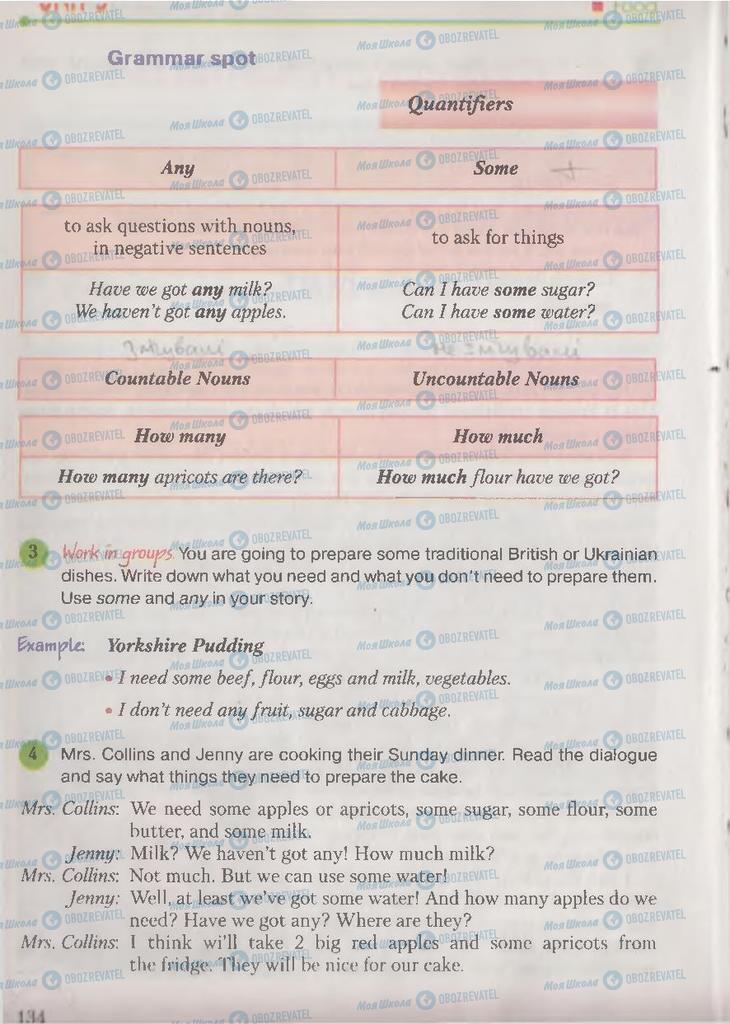 Food
Grammar spot
Quantifiers
Any Some +
to ask questions with nouns,
in negative sentences
to ask for things
Have we got any milk?
We haven't got any apples.
Can I have some sugar?
Can I have some water?
Злічувані не злічувані
Countable Nouns Uncountable Nouns
How many How much
How many apricots are there? How much flour have we got?
3 Work in groups. You are going to prepare some traditional British or Ukrainian
dishes. Write down what you need and what you don't need to prepare them.
Use some and any in your story.
Example: Yorkshire Pudding
• I need some beef, flour, eggs and milk, vegetables.
• I don't need any fruit, sugar and cabbage.
4 Mrs. Collins and Jenny are cooking their Sunday dinner. Read the dialogue
and say what things they need to prepare the cake.
Mrs. Collins: We need some apples or apricots, some sugar, some flour, some
butter, and some milk.
Jenny: Milk? We haven't got any! How much milk?
Mrs. Collins: Not much. But we can use some water!
Jenny: Well, at least we've got some water! And how many apples do we
need? Have we got any? Where are they?
Mrs. Collins: I think wi'll take 2 big red apples and some apricots from
the fridge. They will be nice for our cake.
134
Моя Школа OBOZREVATEL